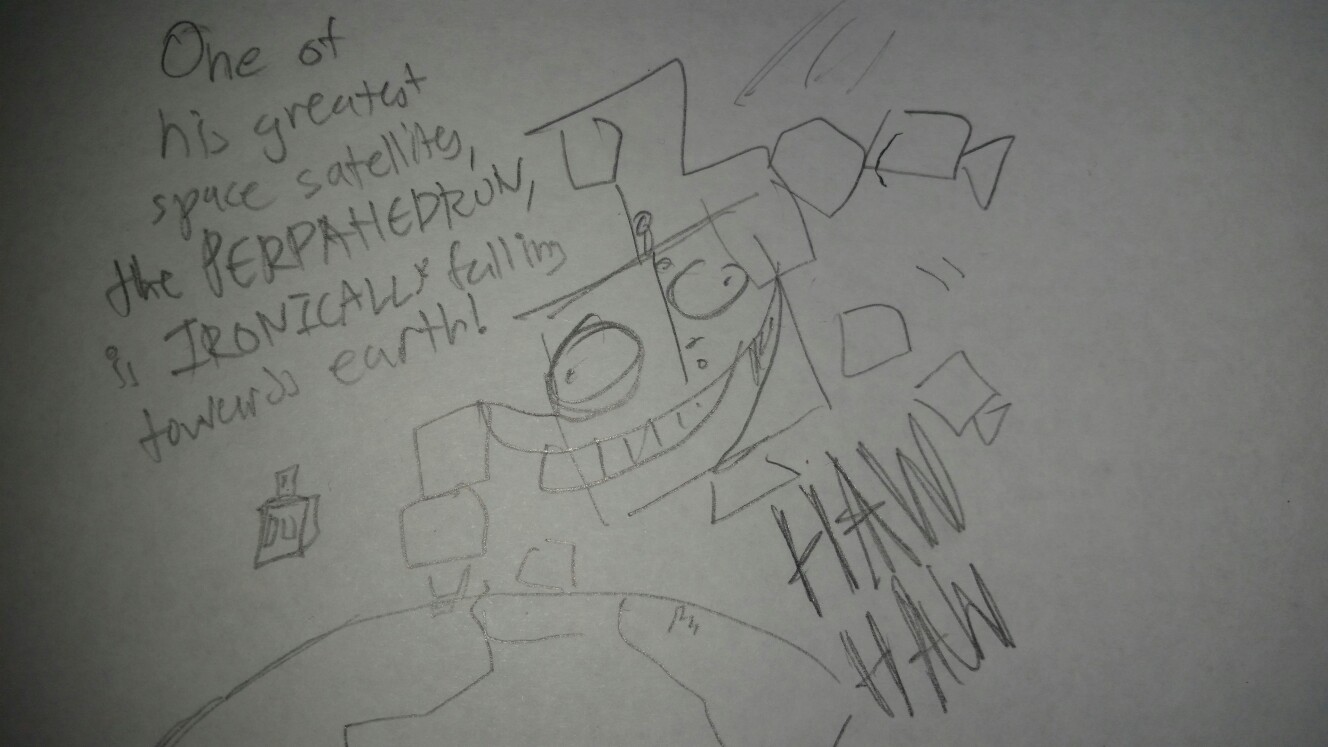 One of
his greatest
space satellites,
the PERPAHEDRUN,
is IRONICALLY falling
towards earth!
HAW
HAW